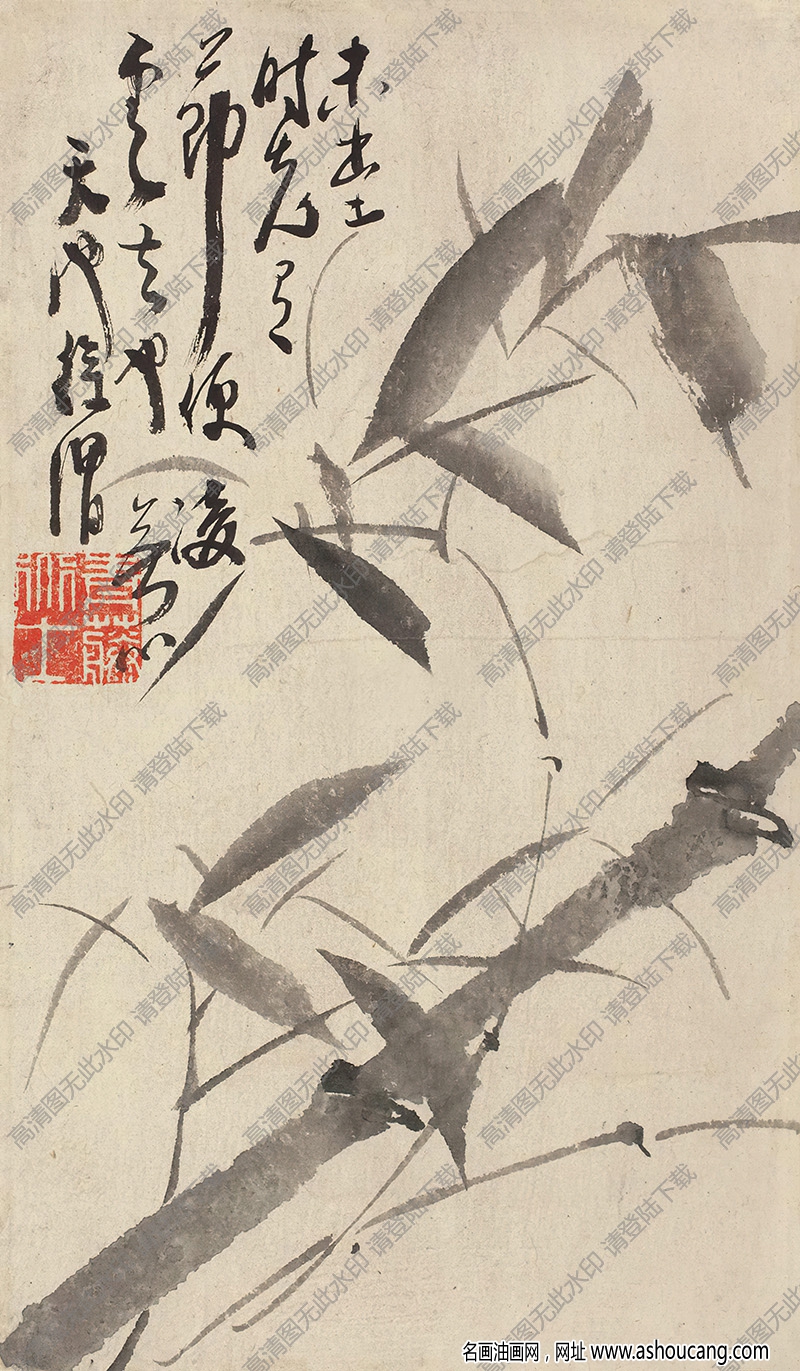 未出土
时先有
節便凌
雲去也無心
天池徐渭
青藤道士
高清图无此水印 请登陆下载
名画油画网，网址 www.ashoucang.com